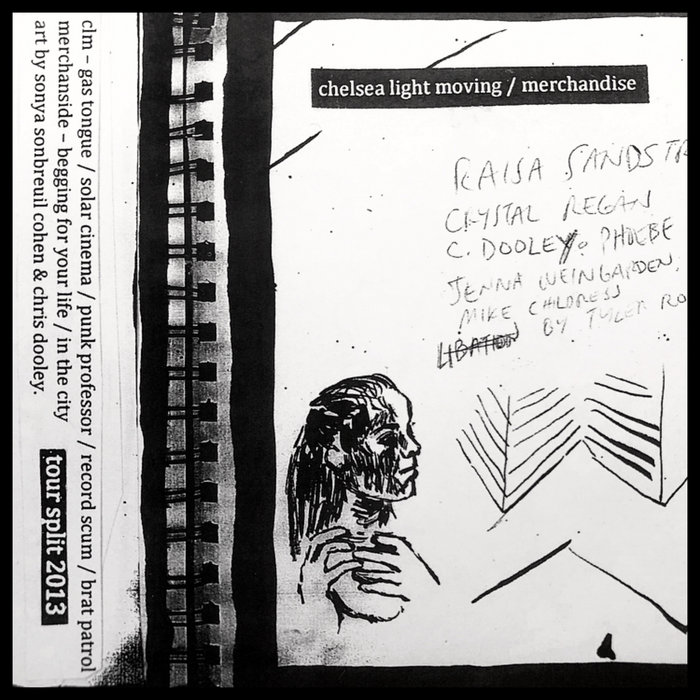 clm – gas tongue / solar cinema / punk professor / record scum / brat patrol
merchanside – begging for your life / in the city
art by sonya sonbreuil cohen & chris dooley.
tour split 2013
chelsea light moving / merchandise
RAISA SANDSTR
CRYSTAL REGAN
C. DOOLEY. PHOEBE
JENNA WEINGARDEN.
MIKE CHILDRESS
LIBATION BY TYLER RO